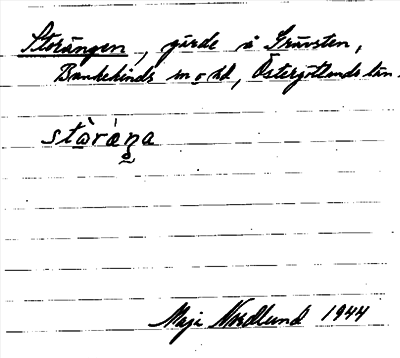 Storängen, gärde i Grävsten,
Bankekinds sn o hd, Östergötlands län.
stòràŋa
Maja Nordlund 1944